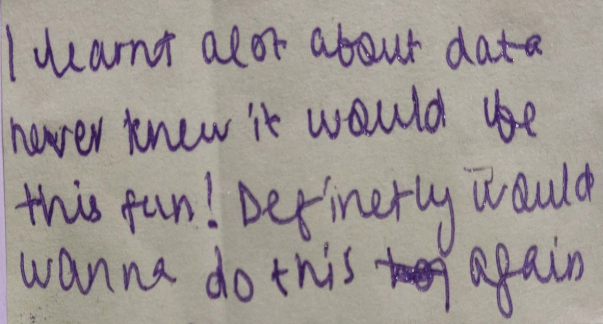 I learnt alot about data
never knew it would be
this fun! Definetly would
wanna do this again